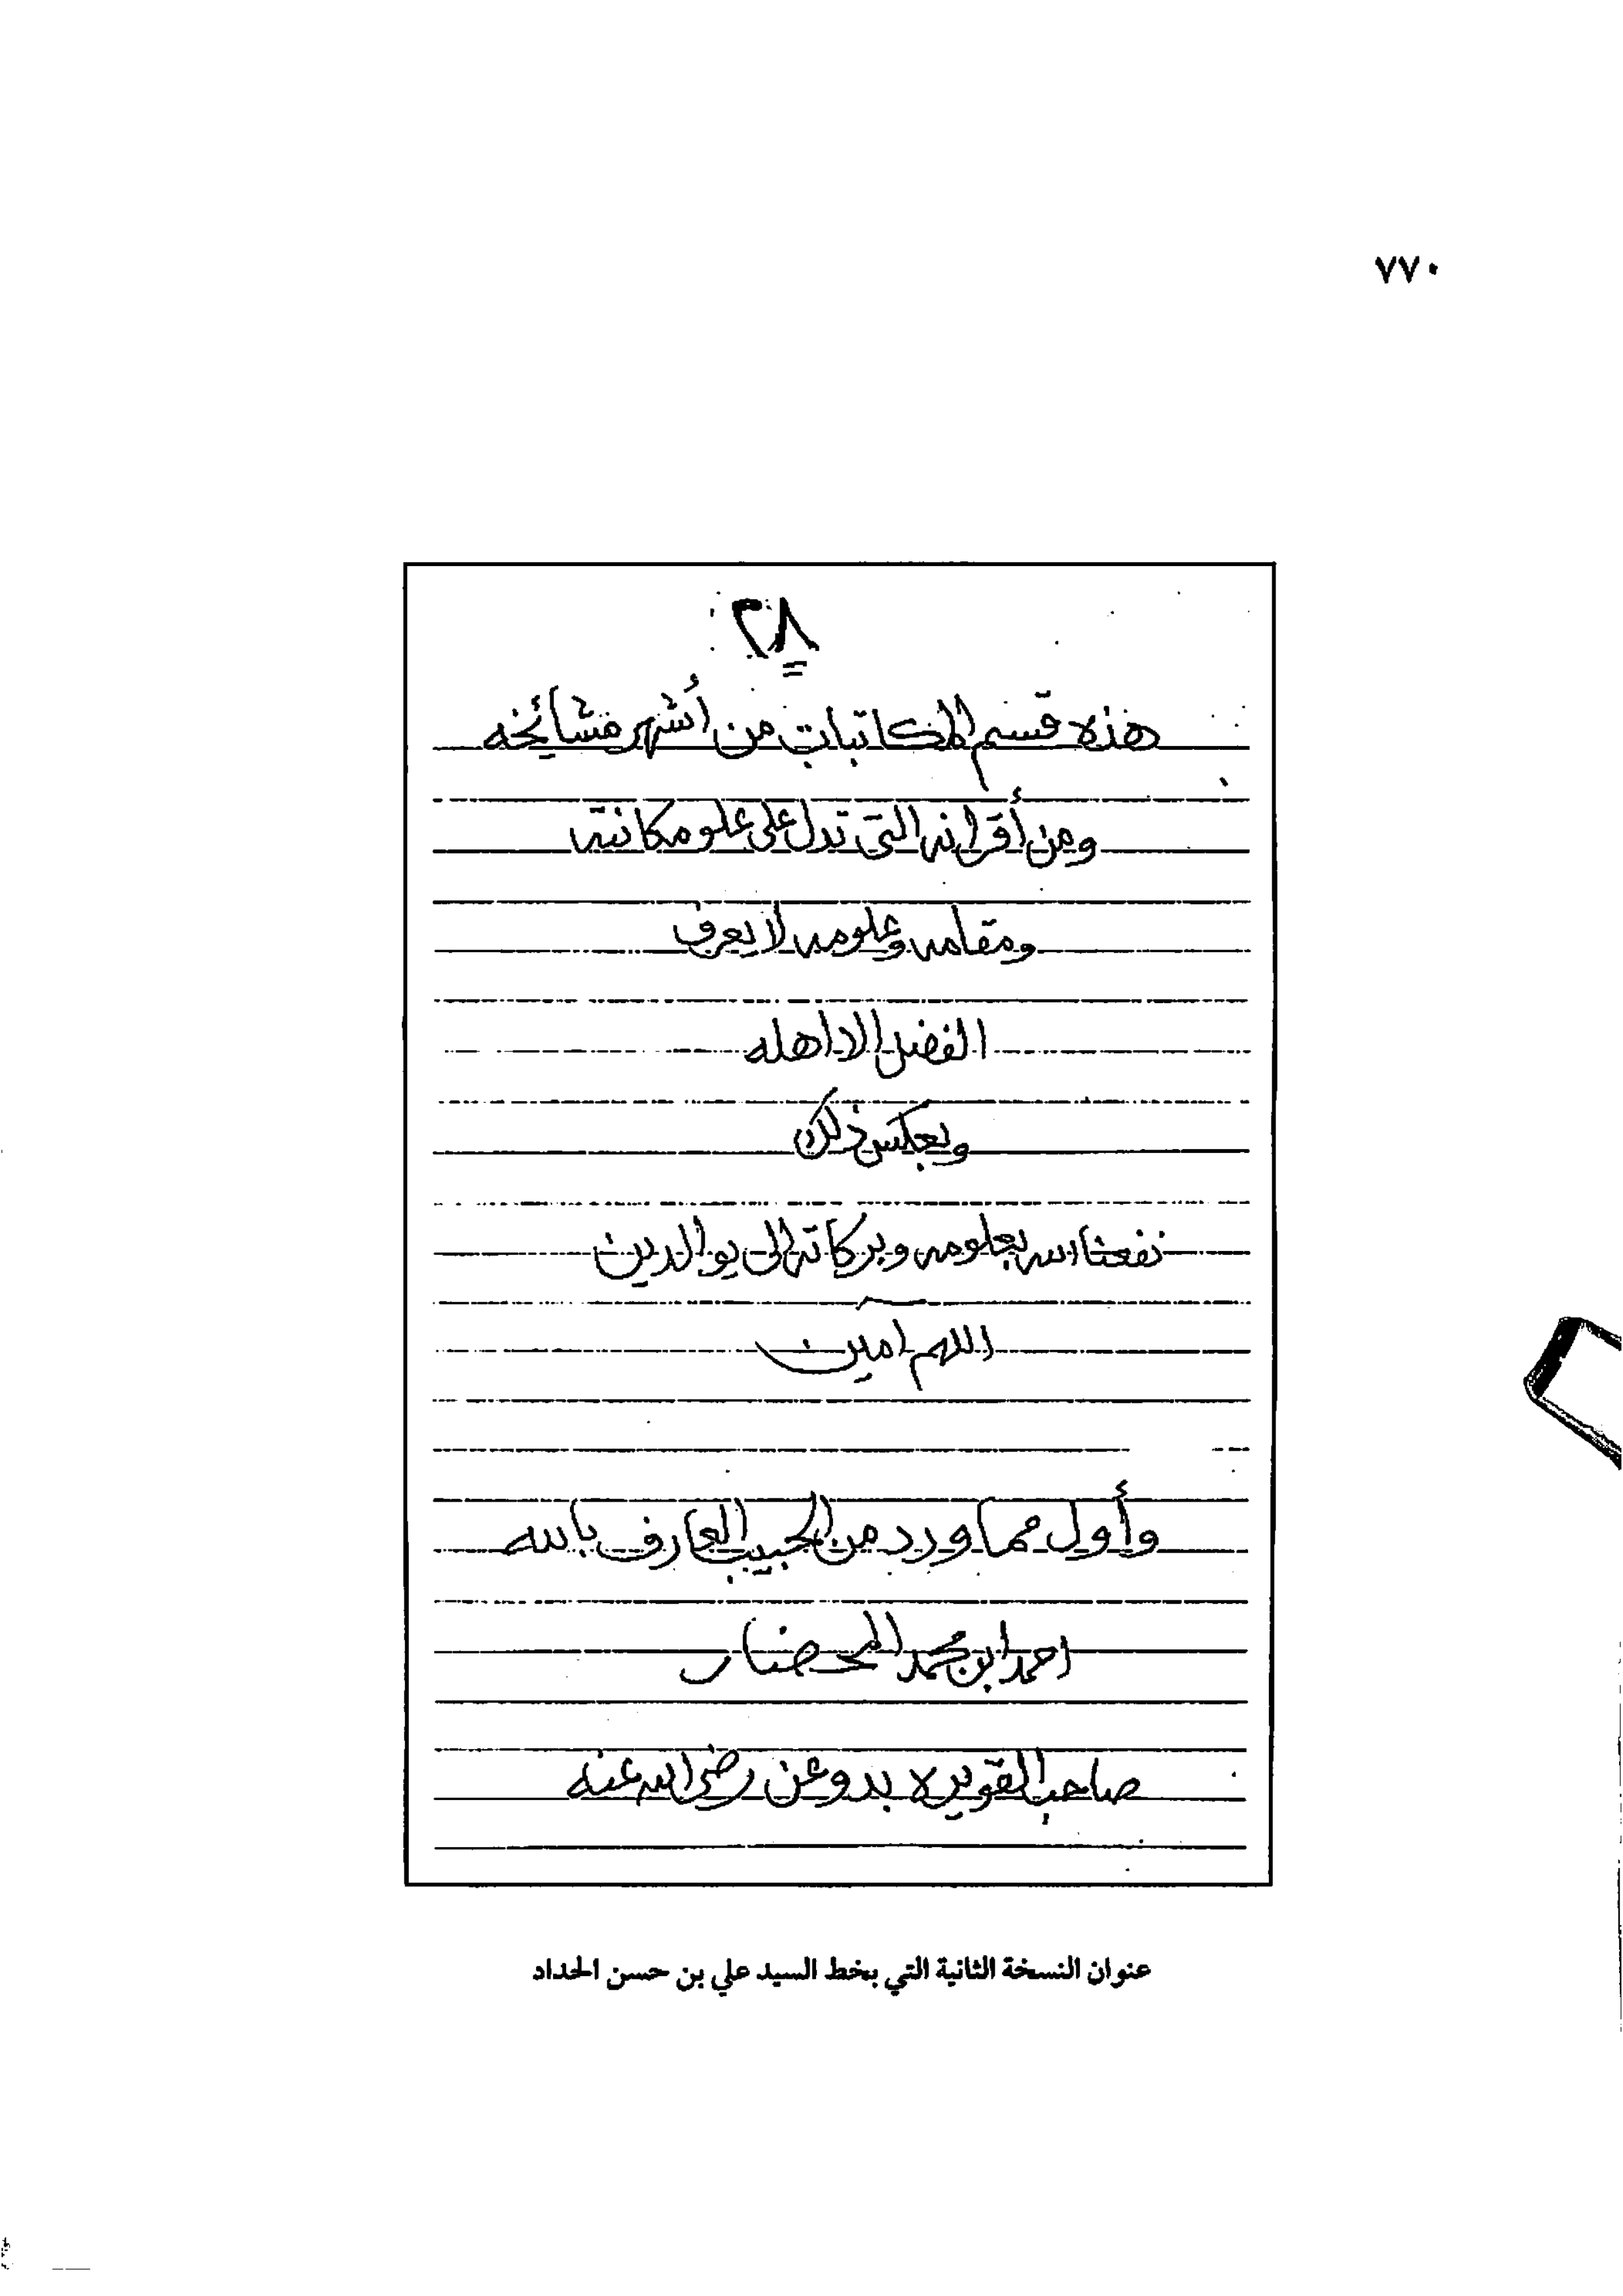 ٧٧٠
٢٨
هذه قسم المكاتبات من أشهر مشائخه
ومن أقرانه التي تدل على علو مكانته
ومقامه وعلومه لا يعرف
الفضل الا اهله
وبعكس ذلك
نفعنا الله بعلومه وبركاته الى يوم الدين
اللهم آمين
وأول مما ورد من الحبيب العارف بالله
احمد ابن محمد المحضار
صاحب القويره بدوعن رضي الله عنه
عنوان النسخة الثانية التي بخط السيد علي بن حسن الحداد